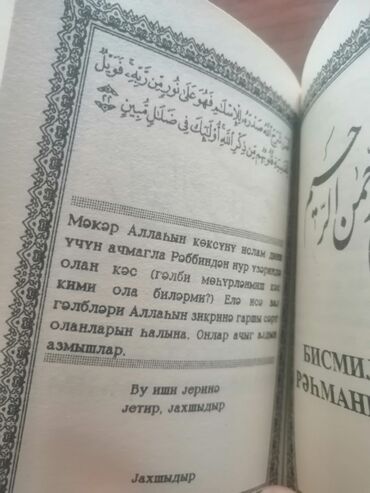 شرح الله صدره للإسلام فهو على نور من ربه فويل
للقسية قلوبهم من ذكر الله أولئك في ضلال مبين ٢٢
Мәкәр Аллаһын көксүнү ислам дини
үчүн ачмагла Рәббиндән нур үзәриндә
олан кәс (гәлби мөһүрләнмиш кәс
кими ола биләрми?) Елә исә вај
гәлбләри Аллаһын зикринә гаршы сәрт
оланларын һалына. Онлар ачыг ајдын
азмышлар.
Бу иши јеринә
јетир, јахшыдыр
Јахшыдыр
الرحمن الرحيم
БИСМИЛ
РӘҺМАНИ